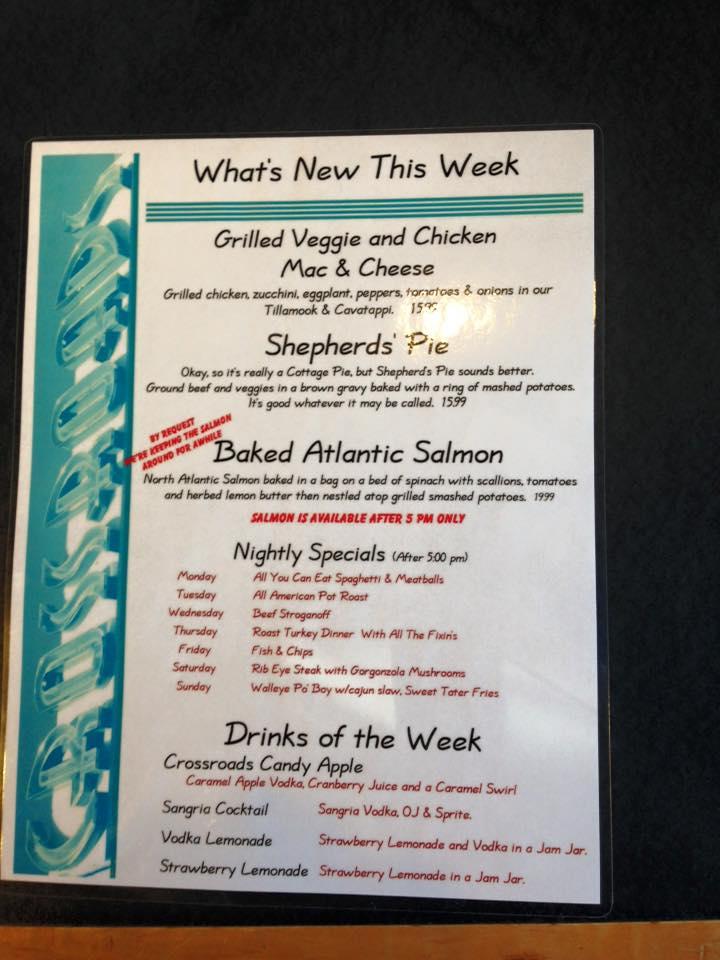 What's New This Week
Grilled Veggie and Chicken
Mac & Cheese
Grilled chicken, zucchini, eggplant, peppers, tomatoes & onions in our
Tillamook & Cavatappi.
Shepherds' Pie
Okay, so it's really a Cottage Pie, but Shepherd's Pie sounds better.
Ground beef and veggies in a brown gravy baked with a ring of mashed potatoes.
It's good whatever it may be called. 15.99
BY REQUEST
WE'RE KEEPING THE SALMON
AROUND FOR AWHILE
Baked Atlantic Salmon
North Atlantic Salmon baked in a bag on a bed of spinach with scallions, tomatoes
and herbed lemon butter then nestled atop grilled smashed potatoes. 19.99
SALMON IS AVAILABLE AFTER 5 PM ONLY
Nightly Specials (After 5:00 pm)
Monday All You Can Eat Spaghetti & Meatballs
Tuesday All American Pot Roast
Wednesday Beef Stroganoff
Thursday Roast Turkey Dinner With All The Fixin's
Friday Fish & Chips
Saturday Rib Eye Steak with Gorgonzola Mushrooms
Sunday Walleye 'Po' Boy w/cajun slaw, Sweet Tater Fries
Drinks of the Week
Crossroads Candy Apple
Caramel Apple Vodka, Cranberry Juice and a Caramel Swirl
Sangria Cocktail Sangria Vodka, OJ & Sprite.
Vodka Lemonade Strawberry Lemonade and Vodka in a Jam Jar.
Strawberry Lemonade Strawberry Lemonade in a Jam Jar.
CROSSROADS